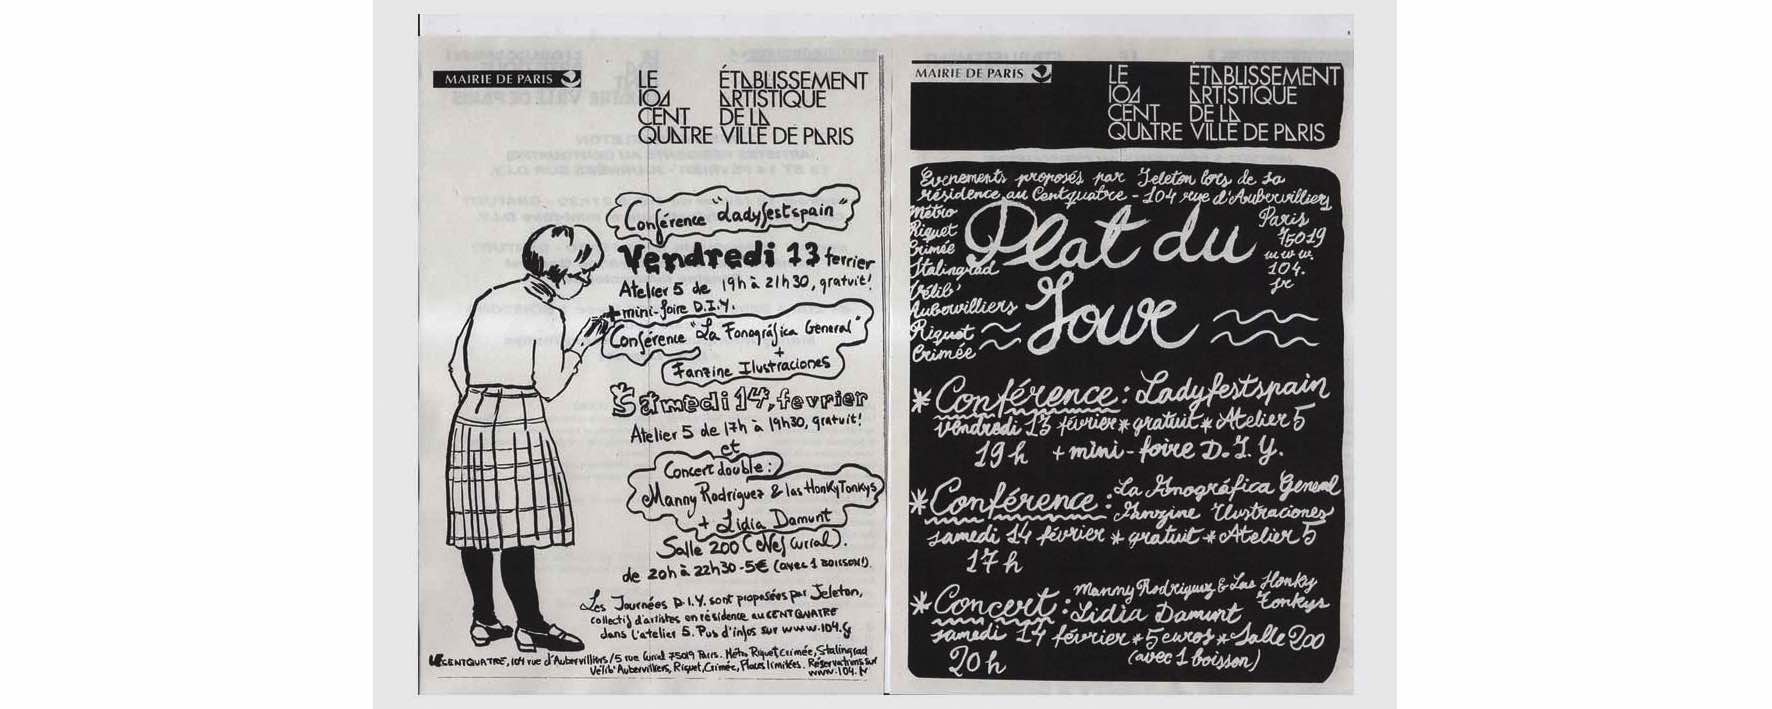 MAIRIE DE PARIS
LE ÉTABLISSEMENT
104 ARTISTIQUE
CENT DE LA
QUATRE VILLE DE PARIS
Conférence "Ladyfestspain"
Vendredi 13 fevrier
Atelier 5 de 19h à 21h30, gratuit!
+ mini-foire D.I.Y.
Conférence "La Fonográfica General"
+
Fanzine Ilustraciones
Samedi 14, fevrier
Atelier 5 de 17h à 19h30, gratuit!
et
Concert double:
Manny Rodriguez & las HonkyTonkys
+ Lidia Damunt
Salle 200 (Nef Curial).
de 20h à 22h30 - 5€ (avec 1 BOISSON!).
Les Journées D.I.Y. sont proposées par Jeleton,
collectif d'artistes en résidence au CENTQUATRE
dans l'atelier 5. Pus d'infos sur www.104.fr
LECENTQUATRE, 104 rue d'Aubervilliers/5 rue Curial 75019 Paris. Métro Riquet, Crimée, Stalingrad
Vélib' Aubervilliers, Riquet, Crimée, Places limitées. Réservations sur
www.104.fr
MAIRIE DE PARIS
LE ÉTABLISSEMENT
104 ARTISTIQUE
CENT DE LA
QUATRE VILLE DE PARIS
Evenements proposés par Jeleton lors de sa
résidence au Centquatre - 104 rue d'Aubervilliers
Métro
Riquet
Crimée
Stalingrad
Vélib'
Aubervilliers
Riquet
Crimée
Plat du
Jour
Paris
75019
www.
104.
fr
* Conférence : Ladyfestspain
vendredi 13 février * gratuit * Atelier 5
19 h + mini-foire D.I.Y.
* Conférence : La Fonográfica General
Fanzine Ilustraciones
samedi 14 février * gratuit * Atelier 5
17 h
* Concert : Manny Rodriguez & Las Honky
Tonkys
Lidia Damunt
samedi 14 février * 5 euros * Salle 200
20 h (avec 1 boisson)